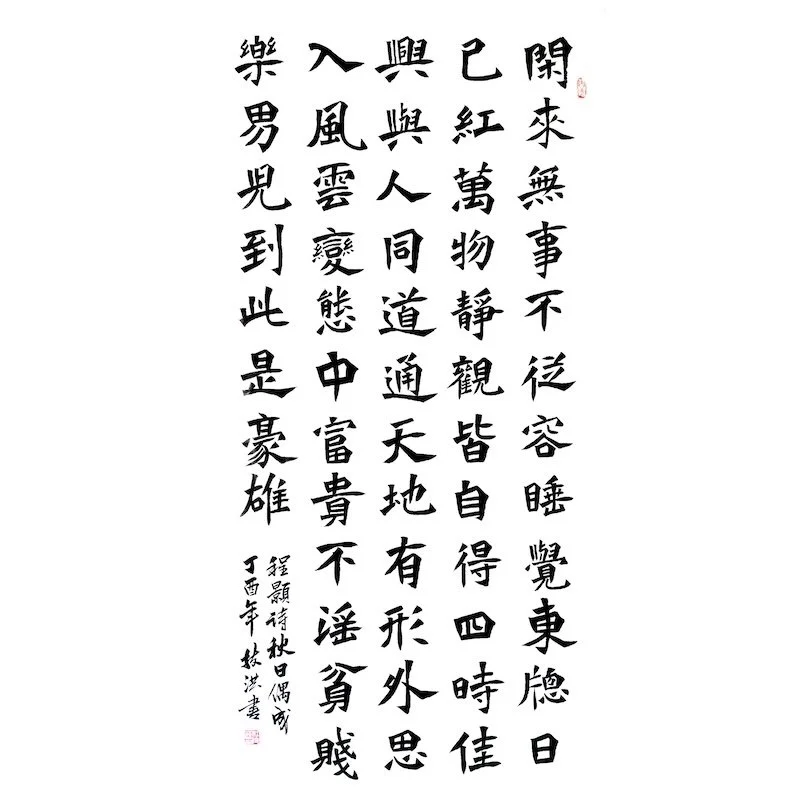 閑來無事不從容睡覺東牕日
已紅萬物靜觀皆自得四時佳
興與人同道通天地有形外思
入風雲變態中富貴不滛貧賤
樂男兒到此是豪雄
程顥詩秋日偶成
丁酉年洪書